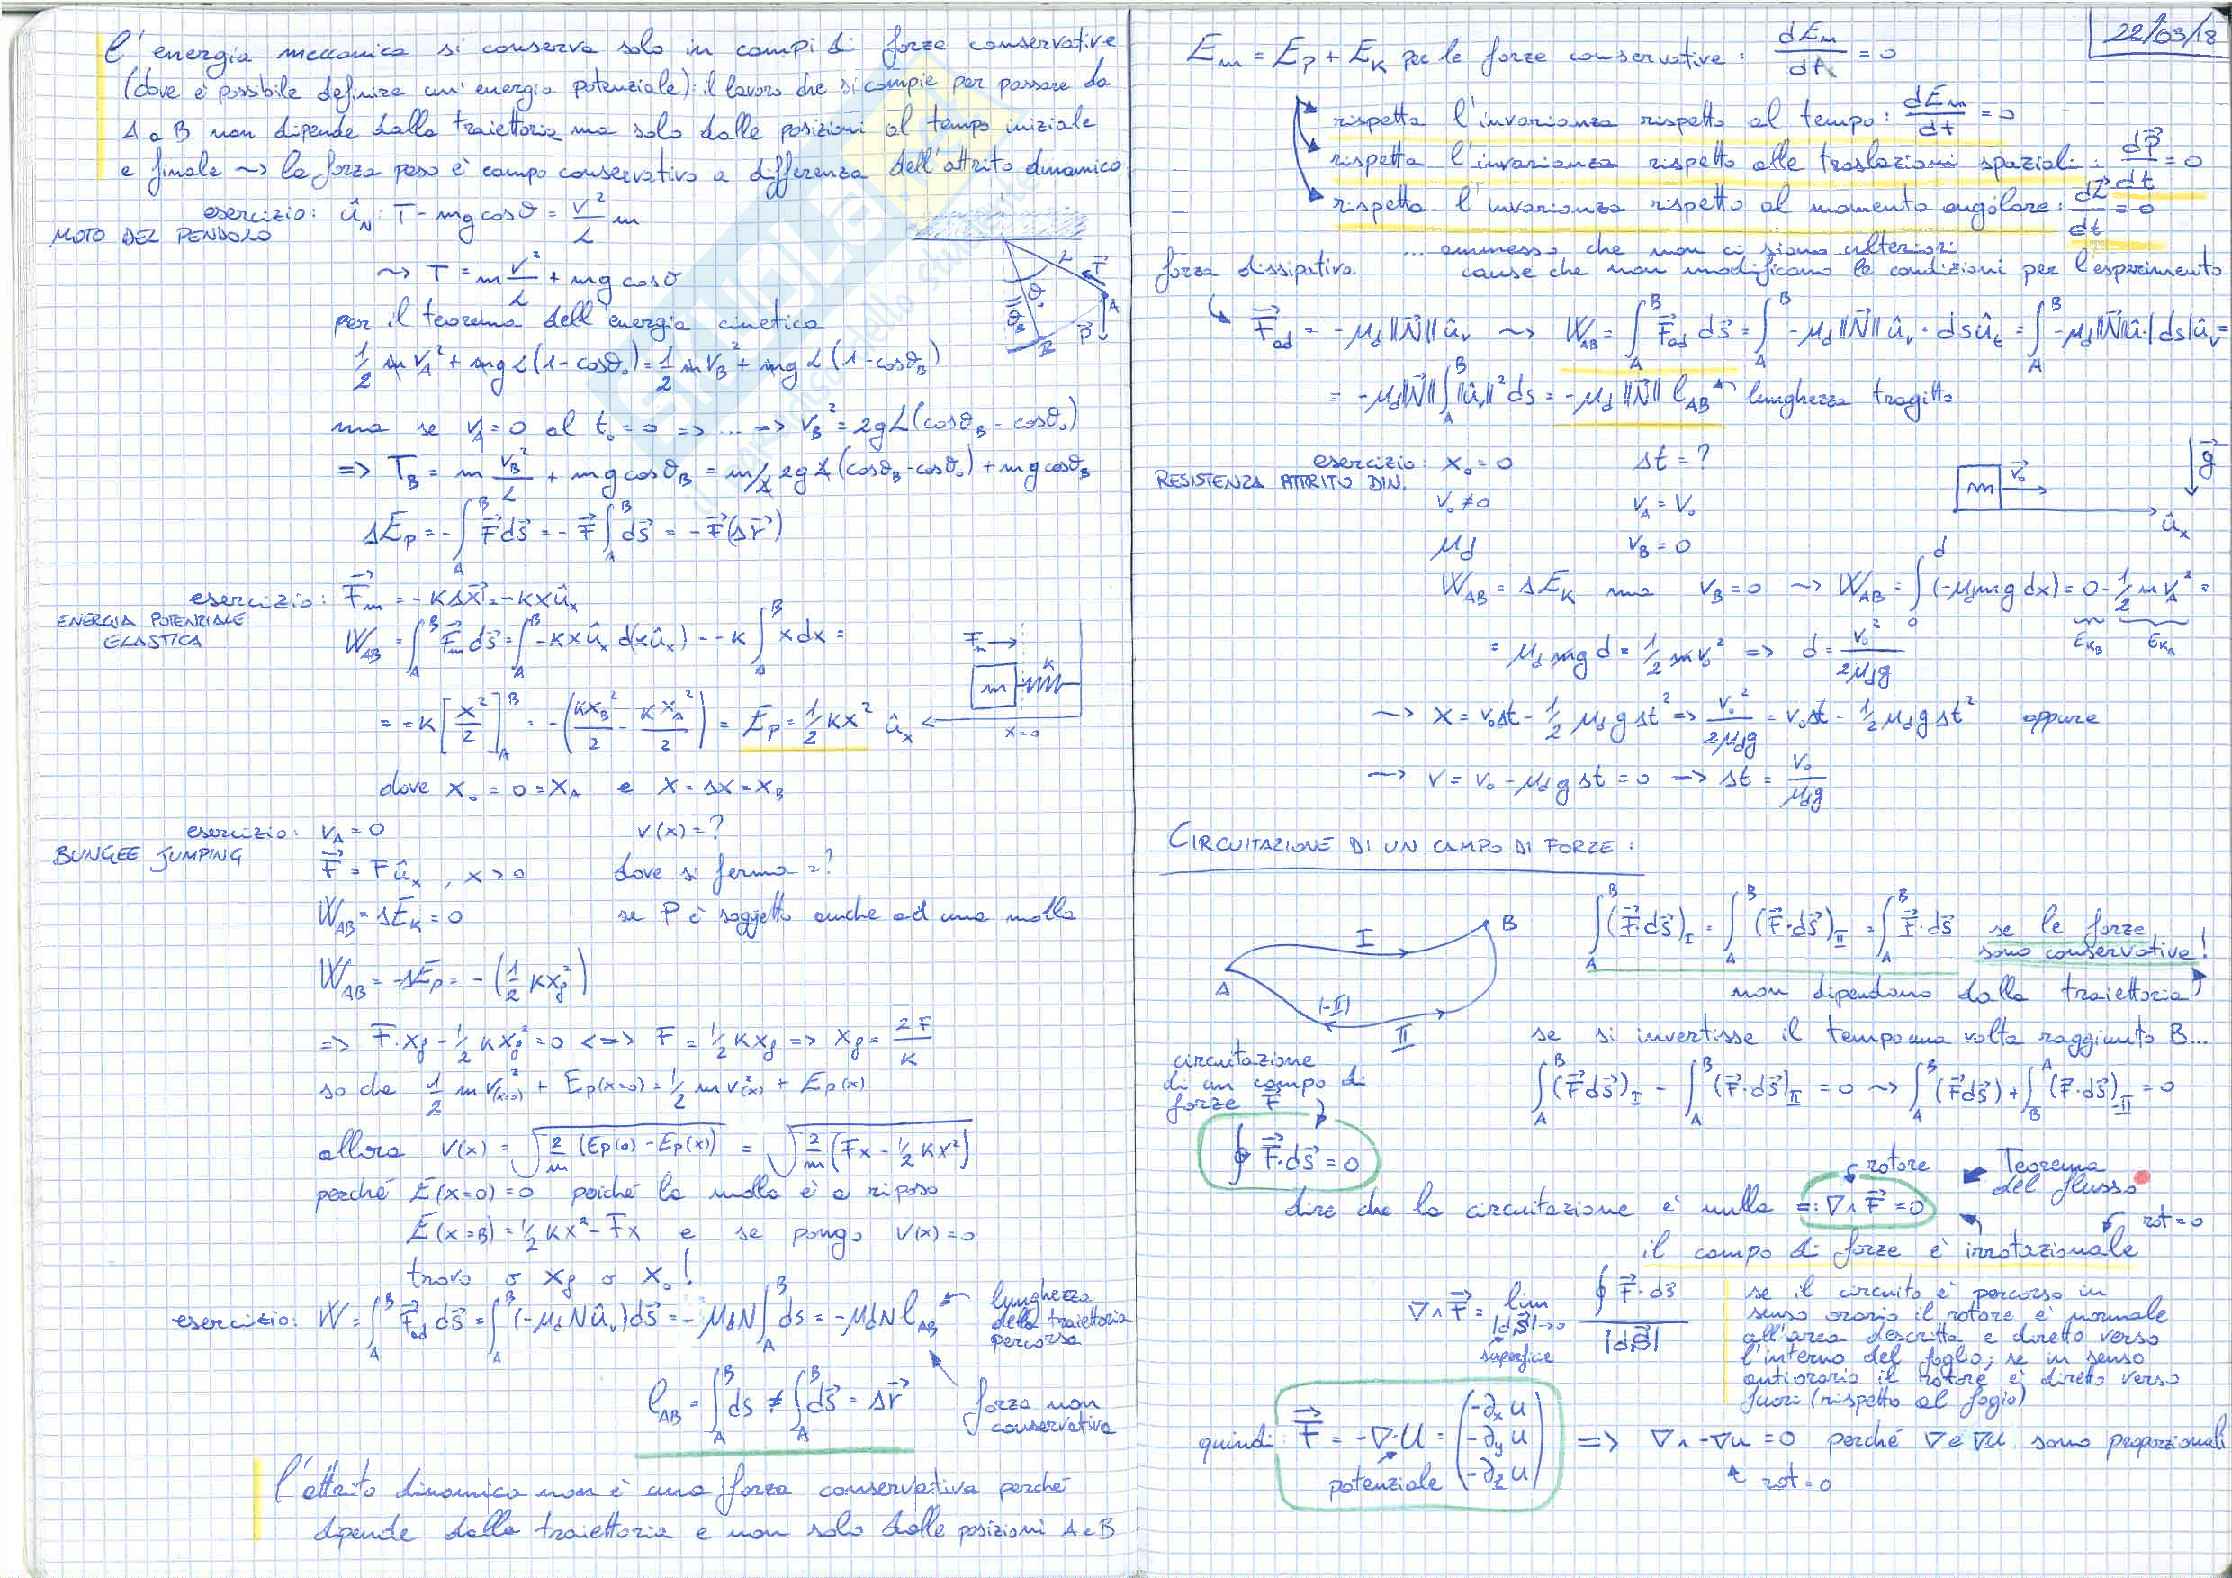 L'energia meccanica si conserva solo in campi di forze conservative
(dove è possibile definire un'energia potenziale): il lavoro che si compie per passare da
A a B non dipende dalla traiettoria ma solo dalle posizioni al tempo iniziale
e finale ~> la forza peso è campo conservativo a differenza dell'attrito dinamico
esercizio: û_N: T - mg cosθ = v²/L m
MOTO DEL PENDOLO
~> T = m v²/L + mg cosθ
per il teorema dell'energia cinetica
1/2 m v_A² + mgL(1-cosθ₀) = 1/2 m v_B² + mgL(1-cosθ_B)
ma se v_A = 0 al t₀ = 0 => ... => v_B² = 2gL(cosθ_B - cosθ₀)
=> T_B = m v_B²/L + mg cosθ_B = m/L 2gL(cosθ_B - cosθ₀) + mg cosθ_B
ΔE_p = -∫_A^B F⃗ ds⃗ = -F⃗ ∫_A^B ds⃗ = -F⃗(Δr⃗)
esercizio: F⃗_m = -KΔx⃗ = -Kx û_x
ENERGIA POTENZIALE
ELASTICA
W_AB = ∫_A^B F⃗_m ds⃗ = ∫_A^B -Kx û_x d(x û_x) = -K ∫_A^B x dx =
= -K [x²/2]_A^B = -(Kx_B²/2 - Kx_A²/2) = E_p = 1/2 Kx² û_x
F_m m K x=0
dove x₀ = 0 = x_A e x = Δx = x_B
esercizio: v_A = 0 v(x) = ?
BUNGEE JUMPING
F⃗ = F û_x , x > 0 dove si ferma = ?
W_AB = ΔE_K = 0 se P è soggetto anche ad una molla
W_AB = -ΔE_p = -(1/2 K x_f²)
=> F·x_f - 1/2 K x_f² = 0 <=> F = 1/2 K x_f => x_f = 2F/K
so che 1/2 m v²(x=0) + E_p(x=0) = 1/2 m v²(x) + E_p(x)
allora v(x) = √(2/m (E_p(0) - E_p(x))) = √(2/m [Fx - 1/2 Kx²])
perché E(x=0) = 0 poiché la molla è a riposo
E(x=B) = 1/2 Kx² - Fx e se pongo v(x) = 0
trovo o x_f o x₀!
esercizio: W = ∫_A^B F⃗_ad ds⃗ = ∫_A^B (-μ_d N û_v) ds⃗ = -μ_d N ∫_A^B ds = -μ_d N l_AB
lunghezza
della traiettoria
percorsa
l_AB = ∫_A^B ds ≠ ∫_A^B ds⃗ = Δr⃗
forza non
conservativa
L'attrito dinamico non è una forza conservativa perché
dipende dalla traiettoria e non solo dalle posizioni A e B
22/03/18
E_m = E_p + E_K per le forze conservative: dE_m/dt = 0
rispetta l'invarianza rispetto al tempo: dE_m/dt = 0
rispetta l'invarianza rispetto alle traslazioni spaziali: dP⃗/dt = 0
rispetta l'invarianza rispetto al momento angolare: dL⃗/dt = 0
... ammesso che non ci siano ulteriori
forza dissipativa. cause che non modificano le condizioni per l'esperimento
F⃗_ad = -μ_d ||N⃗|| û_v ~> W_AB = ∫_A^B F⃗_ad ds⃗ = ∫_A^B -μ_d ||N⃗|| û_v · ds û_t = ∫_A^B -μ_d ||N⃗|| û_v |ds| û_v =
= -μ_d ||N⃗|| ∫_A^B ||û_v||² ds = -μ_d ||N⃗|| l_AB lunghezza tragitto
esercizio: x₀ = 0 Δt = ?
RESISTENZA ATTRITO DIN.
v₀ ≠ 0 v_A = v₀
μ_d v_B = 0
m v⃗₀ g⃗ û_x
W_AB = ΔE_K ma v_B = 0 ~> W_AB = ∫_0^d (-μ_d mg dx) = 0 - 1/2 m v_A² =
E_KB E_KA
= μ_d mg d = 1/2 m v₀² => d = v₀²/2μ_d g
~> x = v₀Δt - 1/2 μ_d g Δt² => v₀²/2μ_d g = v₀Δt - 1/2 μ_d g Δt² oppure
~> v = v₀ - μ_d g Δt = 0 -> Δt = v₀/μ_d g
CIRCUITAZIONE DI UN CAMPO DI FORZE:
A I B (-II) II
∫_A^B (F⃗·ds⃗)_I = ∫_A^B (F⃗·ds⃗)_II = ∫_A^B F⃗·ds⃗ se le forze
sono conservative!
non dipendono dalla traiettoria
se si invertisse il tempo una volta raggiunto B...
∫_A^B (F⃗ds⃗)_I - ∫_A^B (F⃗·ds⃗)_II = 0 ~> ∫_A^B (F⃗ds⃗) + ∫_B^A (F⃗·ds⃗)_-II = 0
circuitazione
di un campo di
forze F⃗
∮ F⃗·ds⃗ = 0
rotore Teorema
del flusso
dire che la circuitazione è nulla =: ∇∧F⃗ = 0
rot = 0
il campo di forze è irrotazionale
∇∧F⃗ = lim_{|dS⃗|->0} ∮ F⃗·ds⃗ / |dS⃗|
superficie
se il circuito è percorso in
senso orario il rotore è normale
all'area descritta e diretto verso
l'interno del foglio; se in senso
antiorario il rotore è diretto verso
fuori (rispetto al foglio)
quindi: F⃗ = -∇·U = (-∂_x U, -∂_y U, -∂_z U) => ∇∧-∇U = 0 perché ∇ e ∇U sono proporzionali
potenziale rot = 0